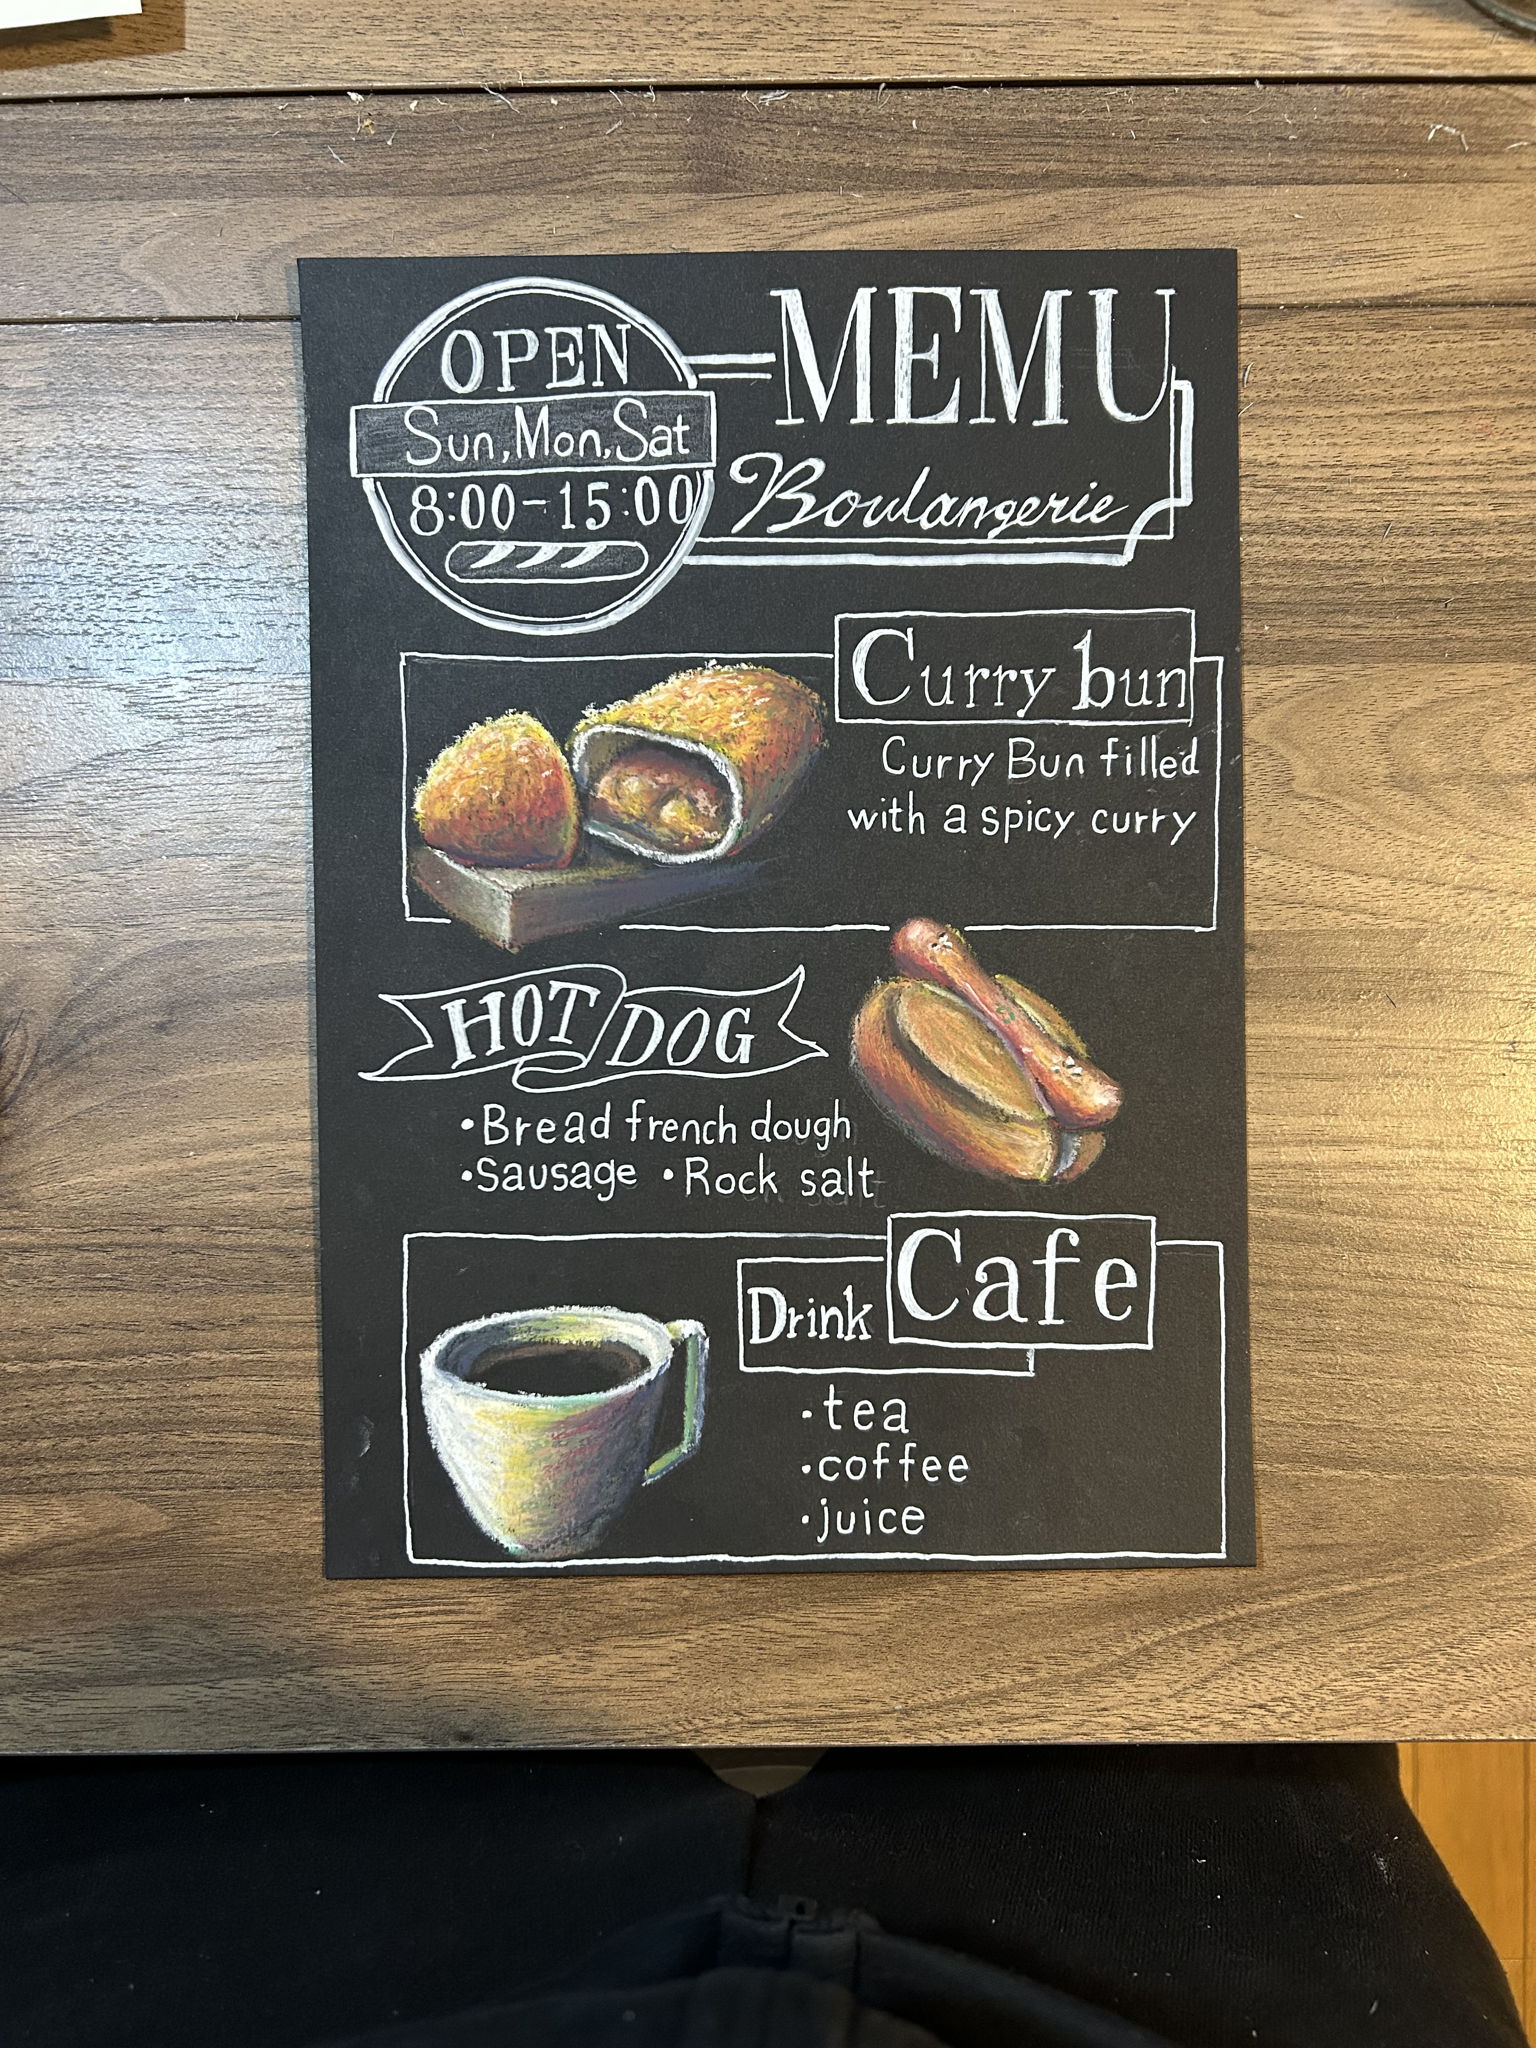 OPEN
Sun,Mon,Sat
8:00-15:00
MEMU
Boulangerie
Curry bun
Curry Bun filled
with a spicy curry
HOT DOG
•Bread french dough
•Sausage •Rock salt
Drink Cafe
•tea
•coffee
•juice